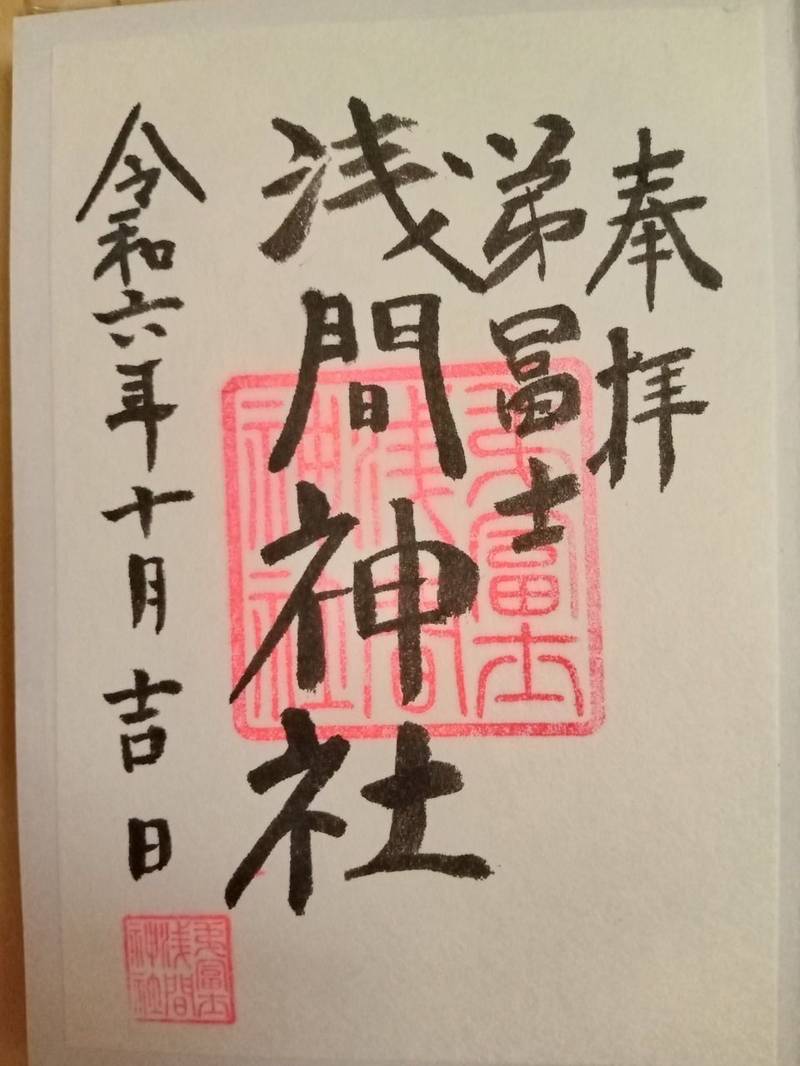 奉拝
弟冨士
浅間神社
令和六年十月吉日
弟冨士
浅間
神社
弟冨士
浅間
神社